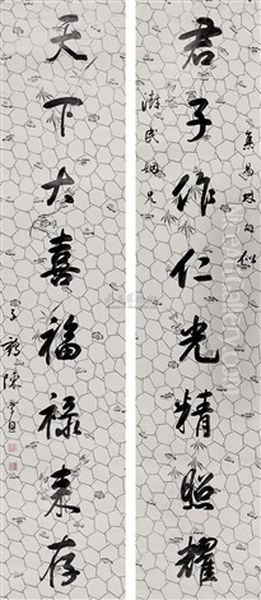 君子作仁光精照耀
集易林句似
澍民姻兄
天下大喜福禄来存
子鶴陳孚恩